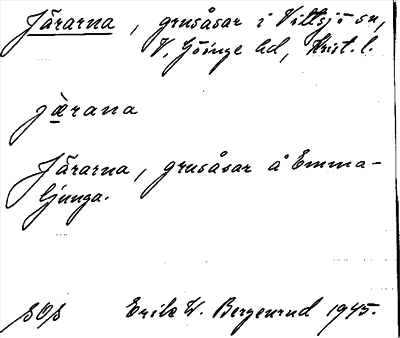 Järarna, grusåsar i Vittsjö sn,
V. Göinge hd, Krist. l.
jærana
Järarna, grusåsar å Emma-
ljunga.
Erik W. Bergenrud 1945.